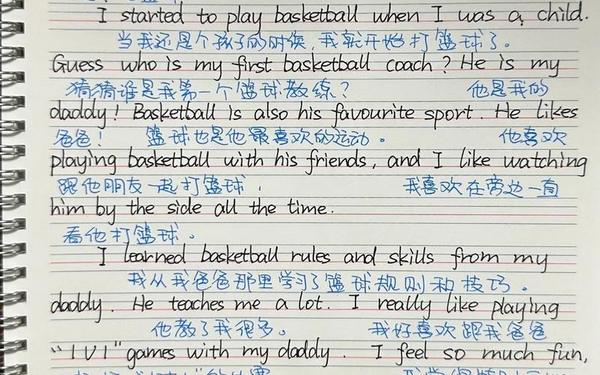 I started to play basketball when I was a child.
当我还是个孩子的时候，我就开始打篮球了。
Guess who is my first basketball coach? He is my
猜猜谁是我第一个篮球教练？ 他是我的
daddy! Basketball is also his favourite sport. He likes
爸爸！ 篮球也是他最喜欢的运动。 他喜欢
playing basketball with his friends, and I like watching
跟他朋友一起打篮球， 我喜欢在旁边一直
him by the side all the time.
看他打篮球。
I learned basketball rules and skills from my
我从我爸爸那里学习了篮球规则和技巧。
daddy. He teaches me a lot. I really like playing
他教了我很多。 我好喜欢跟我爸爸
"1V1" games with my daddy. I feel so much fun,